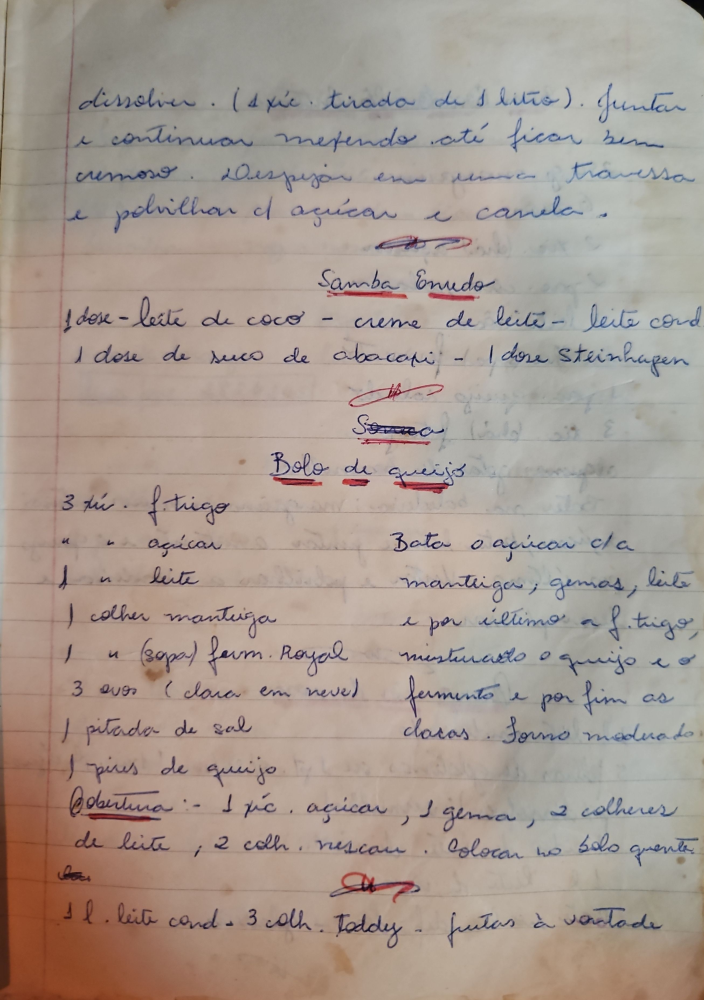 dissolver. (1 xíc. tirada de 1 litro). Juntar
e continuar mexendo até ficar bem
cremoso. Despejar em uma travessa
e polvilhar c/ açúcar e canela.
Samba Enredo
1 dose - leite de coco - creme de leite - leite cond
1 dose de suco de abacaxi - 1 dose Steinhagen
Bolo de queijo
3 xíc. f. trigo
" " açúcar
1 " leite
1 colher manteiga
1 " (sopa) ferm. Royal
3 ovos (clara em neve)
1 pitada de sal
1 pires de queijo
Bata o açúcar c/a
manteiga, gemas, leite
e por último a f. trigo,
misturado o queijo e o
fermento e por fim as
claras. Forno moderado
Cobertura:- 1 xíc. açúcar, 1 gema, 2 colheres
de leite, 2 colh. nescau. Colocar no bolo quente.
1 l. leite cond - 3 colh. Toddy - frutas à vontade